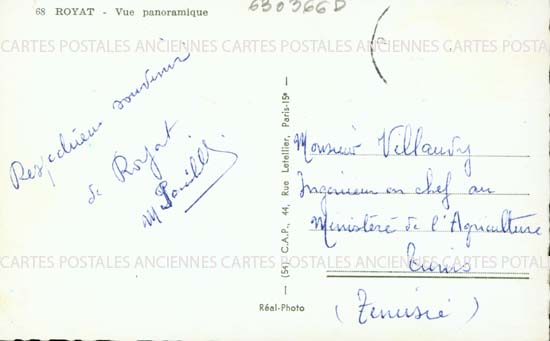 68 ROYAT - Vue panoramique
630366D
CARTES POSTALES ANCIENNES CARTES POSTALES ANCIENNES CARTES POSTALES
Respectueux souvenir
de Royat
M
— (54) C.A.P., 44, Rue Letellier, Paris-15e —
Monsieur Villaudy
Ingénieur en chef au
Ministère de l'Agriculture
Tunis
(Tunisie)
CARTES POSTALES ANCIENNES CARTES POSTALES ANCIENNES CARTES POSTALES
Réal-Photo